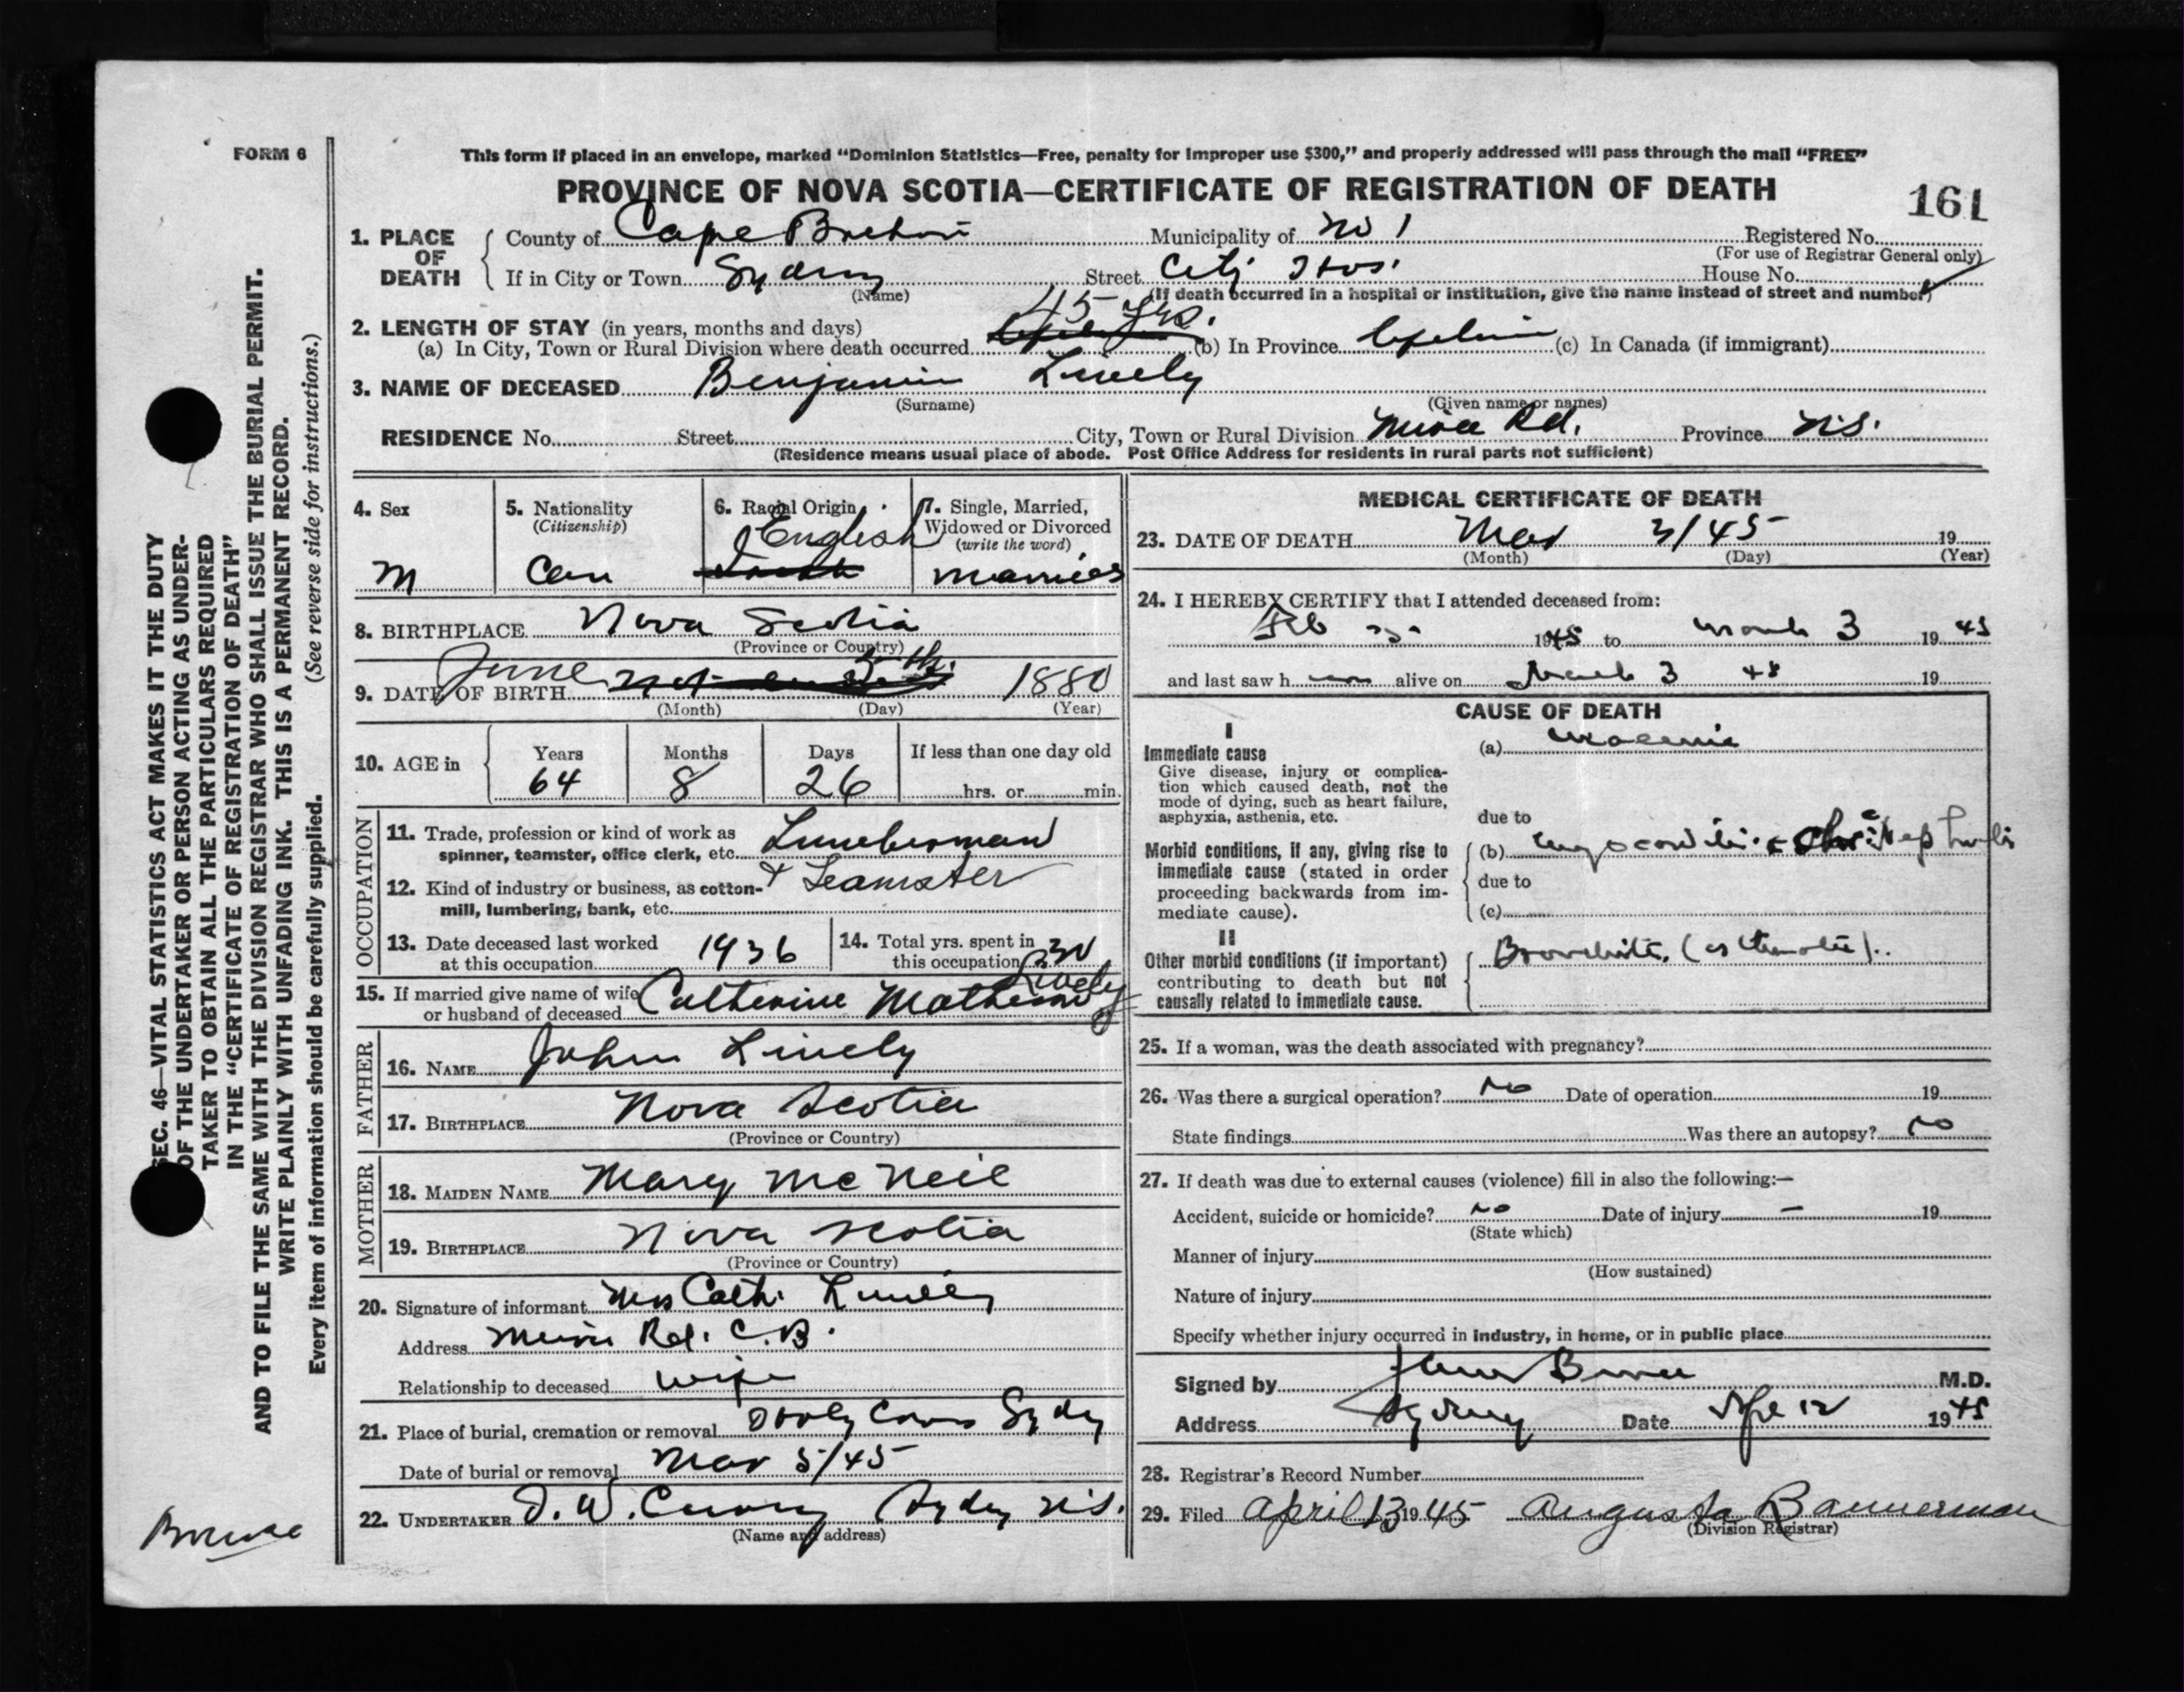 FORM 6
This form if placed in an envelope, marked "Dominion Statistics—Free, penalty for improper use $300," and properly addressed will pass through the mail "FREE"
PROVINCE OF NOVA SCOTIA—CERTIFICATE OF REGISTRATION OF DEATH
161
1. PLACE OF DEATH
County of Cape Breton Municipality of No 1 Registered No.
(For use of Registrar General only)
If in City or Town Sydney Street City Hos. House No.
(Name) (If death occurred in a hospital or institution, give the name instead of street and number)
2. LENGTH OF STAY (in years, months and days) 45 yrs.
(a) In City, Town or Rural Division where death occurred (b) In Province Lifetime (c) In Canada (if immigrant)
3. NAME OF DECEASED Benjamin Lively
(Surname) (Given name or names)
RESIDENCE No. Street City, Town or Rural Division Mira Rd. Province N.S.
(Residence means usual place of abode. Post Office Address for residents in rural parts not sufficient)
4. Sex
M
5. Nationality
(Citizenship)
Can
6. Racial Origin
English
7. Single, Married,
Widowed or Divorced
(write the word)
Married
8. BIRTHPLACE Nova Scotia
(Province or Country)
9. DATE OF BIRTH June 5th. 1880
(Month) (Day) (Year)
10. AGE in
Years Months Days If less than one day old
64 8 26 hrs. or min.
OCCUPATION
11. Trade, profession or kind of work as
spinner, teamster, office clerk, etc. Lumberman
12. Kind of industry or business, as cotton- + Teamster
mill, lumbering, bank, etc.
13. Date deceased last worked
at this occupation 1936
14. Total yrs. spent in
this occupation 30
15. If married give name of wife
or husband of deceased Catherine Matheson Lively
FATHER
16. NAME John Lively
17. BIRTHPLACE Nova Scotia
(Province or Country)
MOTHER
18. MAIDEN NAME Mary McNeil
19. BIRTHPLACE Nova Scotia
(Province or Country)
20. Signature of informant Mrs Cath. Lively
Address Mira Rd. C.B.
Relationship to deceased wife
21. Place of burial, cremation or removal Sydney
Date of burial or removal Mar 5/45
22. UNDERTAKER Sydney N.S.
(Name and address)
MEDICAL CERTIFICATE OF DEATH
23. DATE OF DEATH Mar 3/45 19
(Month) (Day) (Year)
24. I HEREBY CERTIFY that I attended deceased from:
Feb 1945 to March 3 1945
and last saw h im alive on March 3 45 19
CAUSE OF DEATH
I
Immediate cause
Give disease, injury or complica-
tion which caused death, not the
mode of dying, such as heart failure,
asphyxia, asthenia, etc.
(a)
due to
Morbid conditions, if any, giving rise to
immediate cause (stated in order
proceeding backwards from im-
mediate cause).
(b) Myocarditis + Chr. Nephritis
due to
(c)
II
Other morbid conditions (if important)
contributing to death but not
causally related to immediate cause.
Bronchitis (asthmatic).
25. If a woman, was the death associated with pregnancy?
26. Was there a surgical operation? No Date of operation 19
State findings Was there an autopsy? No
27. If death was due to external causes (violence) fill in also the following:—
Accident, suicide or homicide? No Date of injury — 19
(State which)
Manner of injury
(How sustained)
Nature of injury
Specify whether injury occurred in industry, in home, or in public place
Signed by Bruce M.D.
Address Sydney Date Apr 12 1945
28. Registrar's Record Number
29. Filed April 13 1945 Augusta Bannerman
(Division Registrar)
SEC. 46—VITAL STATISTICS ACT MAKES IT THE DUTY
OF THE UNDERTAKER OR PERSON ACTING AS UNDER-
TAKER TO OBTAIN ALL THE PARTICULARS REQUIRED
IN THE "CERTIFICATE OF REGISTRATION OF DEATH"
AND TO FILE THE SAME WITH THE DIVISION REGISTRAR WHO SHALL ISSUE THE BURIAL PERMIT.
WRITE PLAINLY WITH UNFADING INK. THIS IS A PERMANENT RECORD.
Every item of information should be carefully supplied. (See reverse side for instructions.)
Bruce